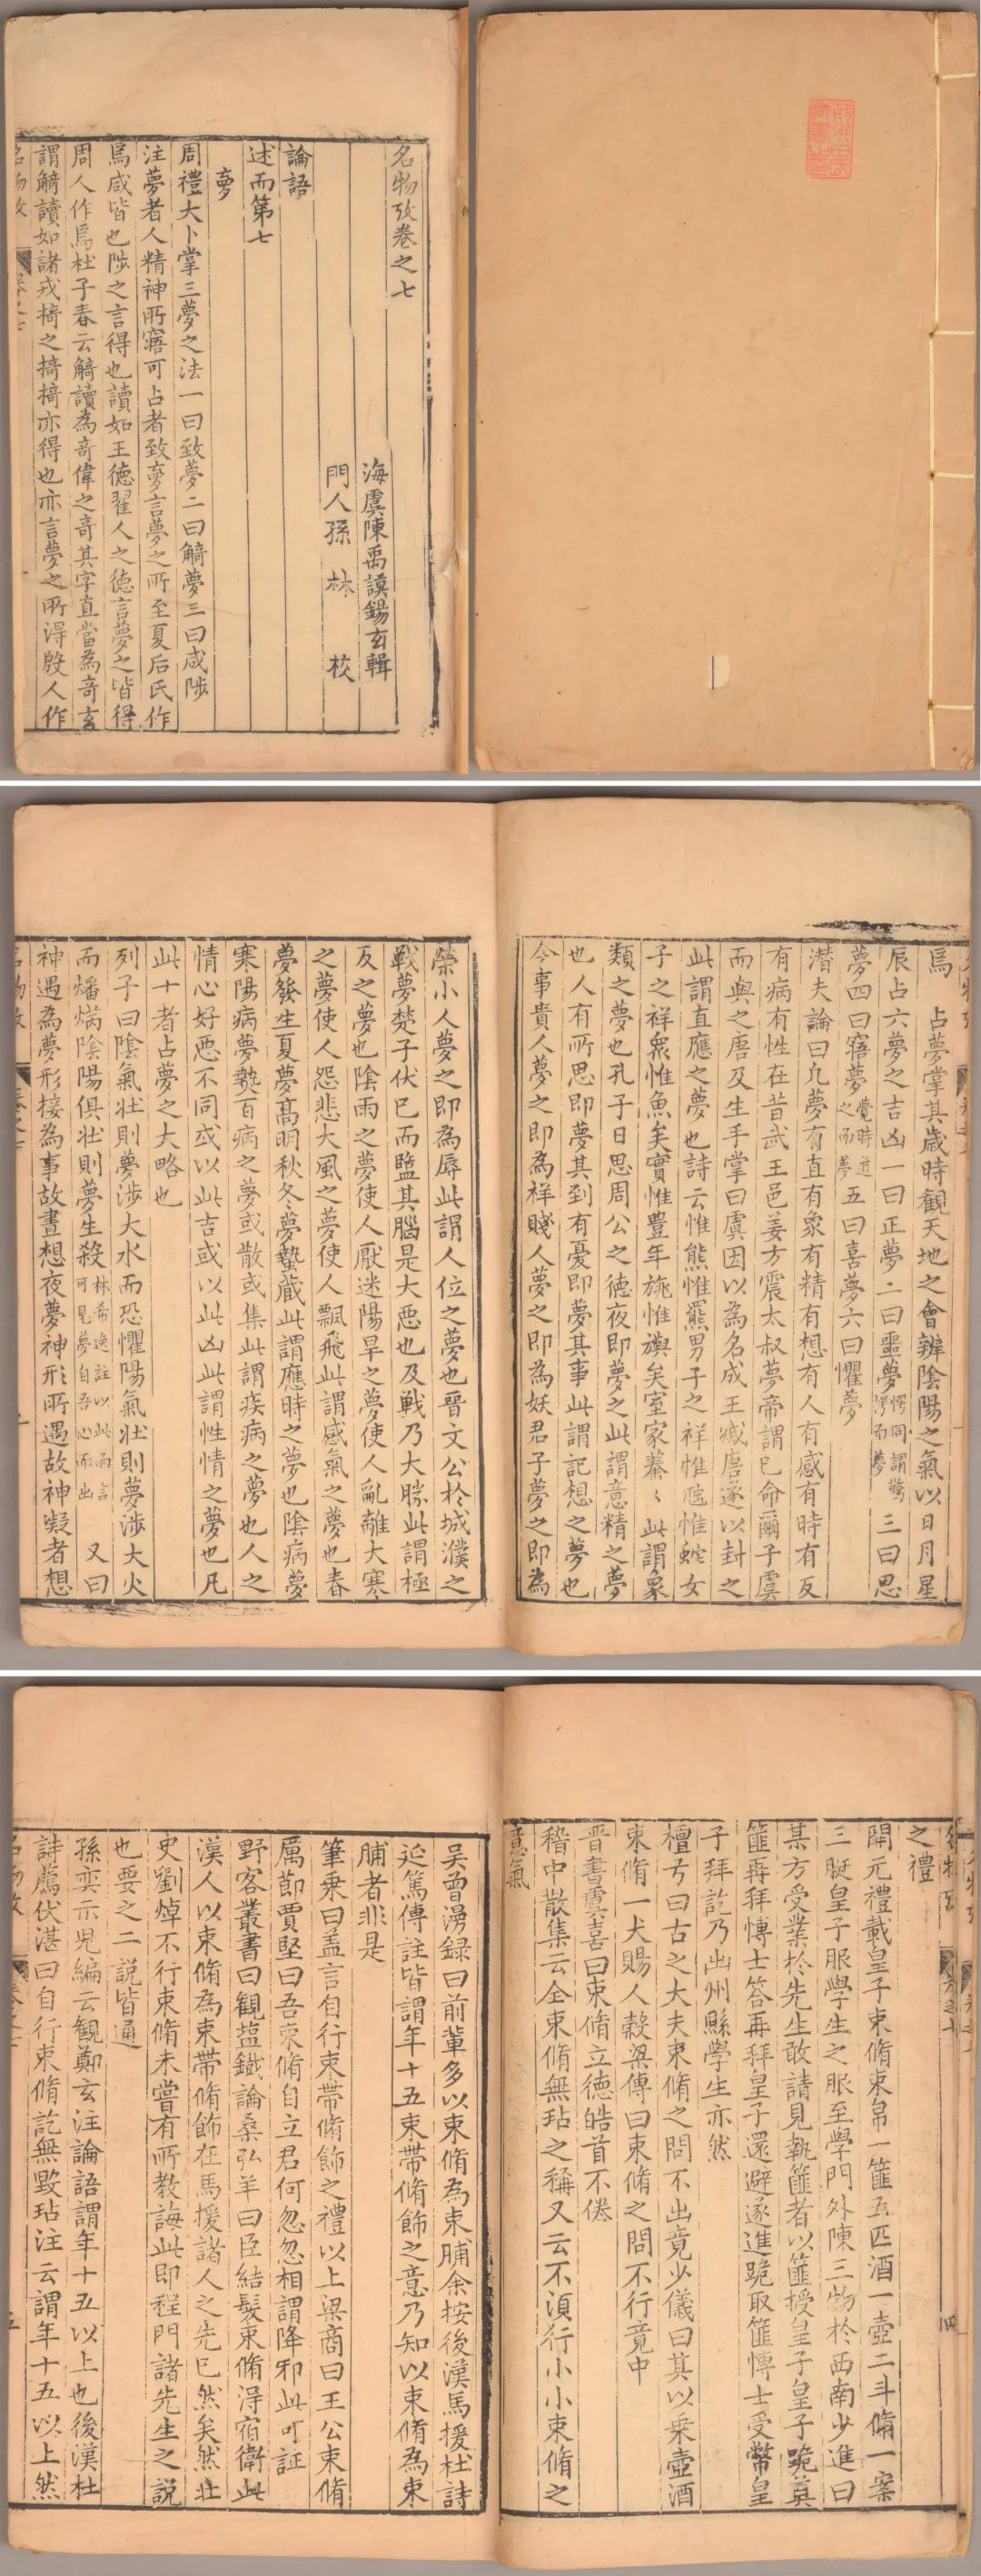 名物攷卷之七
海虞陳禹謨錫玄輯
門人孫林校
論語
述而第七
夢
周禮大卜掌三夢之法一曰致夢二曰觭夢三曰咸陟
注夢者人精神所寤可占者致夢言夢之所至夏后氏作
焉咸皆也陟之言得也讀如王德翟人之德言夢之皆得
周人作焉杜子春云觭讀為奇偉之奇其字直當為奇玄
謂觭讀如諸戎掎之掎掎亦得也亦言夢之所淂殷人作
焉 占夢掌其歲時觀天地之會辨陰陽之氣以日月星
辰占六夢之吉凶一曰正夢二曰噩夢愕同謂驚愕而夢三曰思
夢四曰寤夢覺時道之而夢五曰喜夢六曰懼夢
潛夫論曰凢夢有直有象有精有想有人有感有時有反
有病有性在昔武王邑姜方震太叔夢帝謂已命爾子虞
而與之唐及生手掌曰虞因以為名成王滅唐遂以封之
此謂直應之夢也詩云惟熊惟羆男子之祥惟虺惟蛇女
子之祥衆惟魚矣實惟豊年旐惟旟矣室家蓁〻此謂象
類之夢也孔子日思周公之德夜即夢之此謂意精之夢
也人有所思即夢其到有憂即夢其事此謂記想之夢也
今事貴人夢之即為祥賤人夢之即為妖君子夢之即為
榮小人夢之即為辱此謂人位之夢也晉文公於城濮之
戰夢楚子伏已而盬其腦是大惡也及戰乃大勝此謂極
反之夢也陰雨之夢使人厭迷陽旱之夢使人亂離大寒
之夢使人怨悲大風之夢使人飄飛此謂感氣之夢也春
夢發生夏夢髙明秋冬夢蟄藏此謂應時之夢也陰病夢
寒陽病夢熱百病之夢或散或集此謂疾病之夢也人之
情心好惡不同或以此吉或以此凶此謂性情之夢也凡
此十者占夢之大略也
列子曰陰氣壯則夢涉大水而恐懼陽氣壯則夢涉大火
而燔焫陰陽俱壯則夢生殺林希逸註以此而言可見夢自吾心而出 又曰
神遇為夢形接為事故晝想夜夢神形所遇故神凝者想
之禮
開元禮載皇子束脩束帛一篚五匹酒一壺二斗脩一案
三脡皇子服學生之服至學門外陳三物於西南少進曰
某方受業於先生敢請見執篚者以篚授皇子皇子跪奠
篚再拜愽士答再拜皇子還避遂進跪取篚愽士受幣皇
子拜訖乃出州縣學生亦然
檀弓曰古之大夫束脩之問不出竟少儀曰其以乘壺酒
束脩一犬賜人穀梁傳曰束脩之問不行竟中
晉書虞喜曰束脩立德皓首不倦
稽中散集云全束脩無玷之稱又云不湏行小小束脩之
意氣
吴曾漫録曰前輩多以束脩為束脯余按後漢馬援杜詩
延篤傳註皆謂年十五束帶脩飾之意乃知以束脩為束
脯者非是
筆乗曰盖言自行束帶脩飾之禮以上梁商曰王公束脩
厲莭賈堅曰吾束脩自立君何忽忽相謂降邪此可証
野客叢書曰觀塩鐡論桑弘羊曰臣結髮束脩淂宿衛此
漢人以束脩為束帶脩飾在馬援諸人之先已然矣然壯
史劉焯不行束脩未嘗有所教誨此即程門諸先生之説
也要之二説皆通
孫奕示兒編云觀鄭玄注論語謂年十五以上也後漢杜
詩薦伏湛曰自行束脩訖無毀玷注云謂年十五以上然